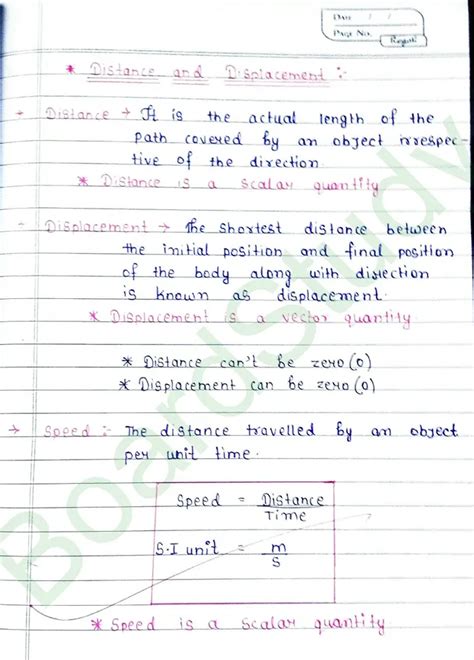 Date / /
Page No.
* Distance and Displacement :-
→ Distance → It is the actual length of the
path covered by an object irrespec-
tive of the direction.
* Distance is a scalar quantity
- Displacement → The shortest distance between
the initial position and final position
of the body along with direction
is known as displacement.
* Displacement is a vector quantity
* Distance can't be zero (0)
* Displacement can be zero (0)
→ Speed :- The distance travelled by an object
per unit time.
Speed = Distance
Time
S.I unit = m
s
* Speed is a scalar quantity
BoardStudy